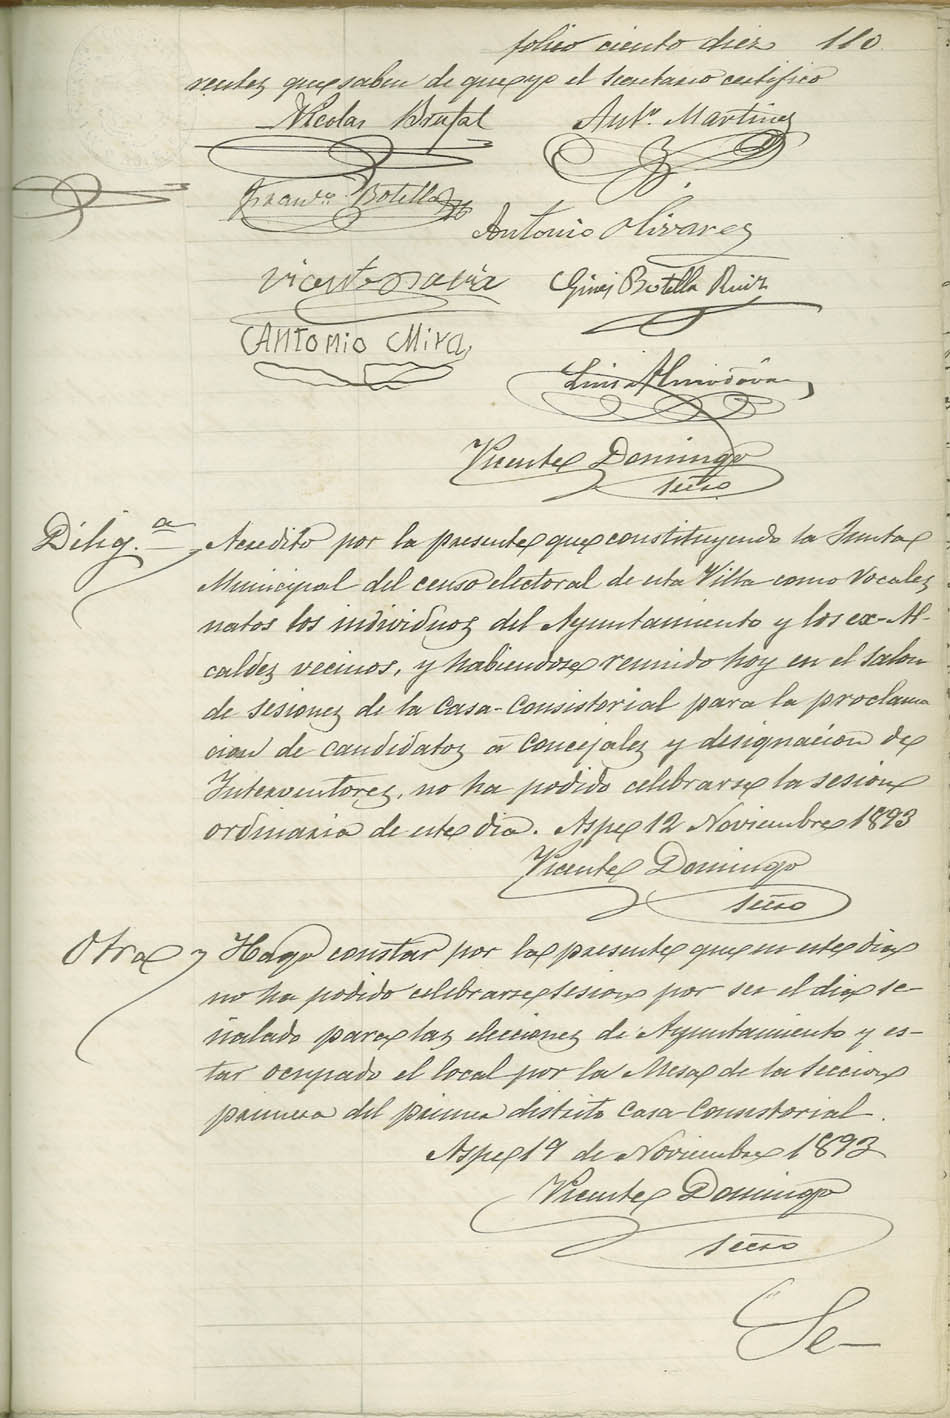 folio ciento diez 110
rentes que saben de que yo el secretario certifico
Nicolas Brufal Antº. Martinez
Franco. Botella
Antonio Olivares
Vicente Pavia Gines Botella Ruiz
Antonio Mira
Luis Almodóvar
Vicente Domingo
secro
Dilig.a Acredito por la presente que constituyendo la Junta
Municipal del censo electoral de esta Villa como Vocales
natos los individuos del Ayuntamiento y los ex-Al-
caldes vecinos, y habiendose reunido hoy en el salon
de sesiones de la Casa-Consistorial para la proclama
cion de candidatos á Concejales y designacion de
Interventores, no ha podido celebrarse la sesion
ordinaria de este dia. Aspe 12 Noviembre 1893
Vicente Domingo
secro
Otra Hago constar por la presente que en este dia
no ha podido celebrarse sesion por ser el dia se-
ñalado para las elecciones de Ayuntamiento y es-
tar ocupado el local por la Mesa de la seccion
primera del primer distrito Casa-Consistorial.
Aspe 19 de Noviembre 1893
Vicente Domingo
secro
Se-